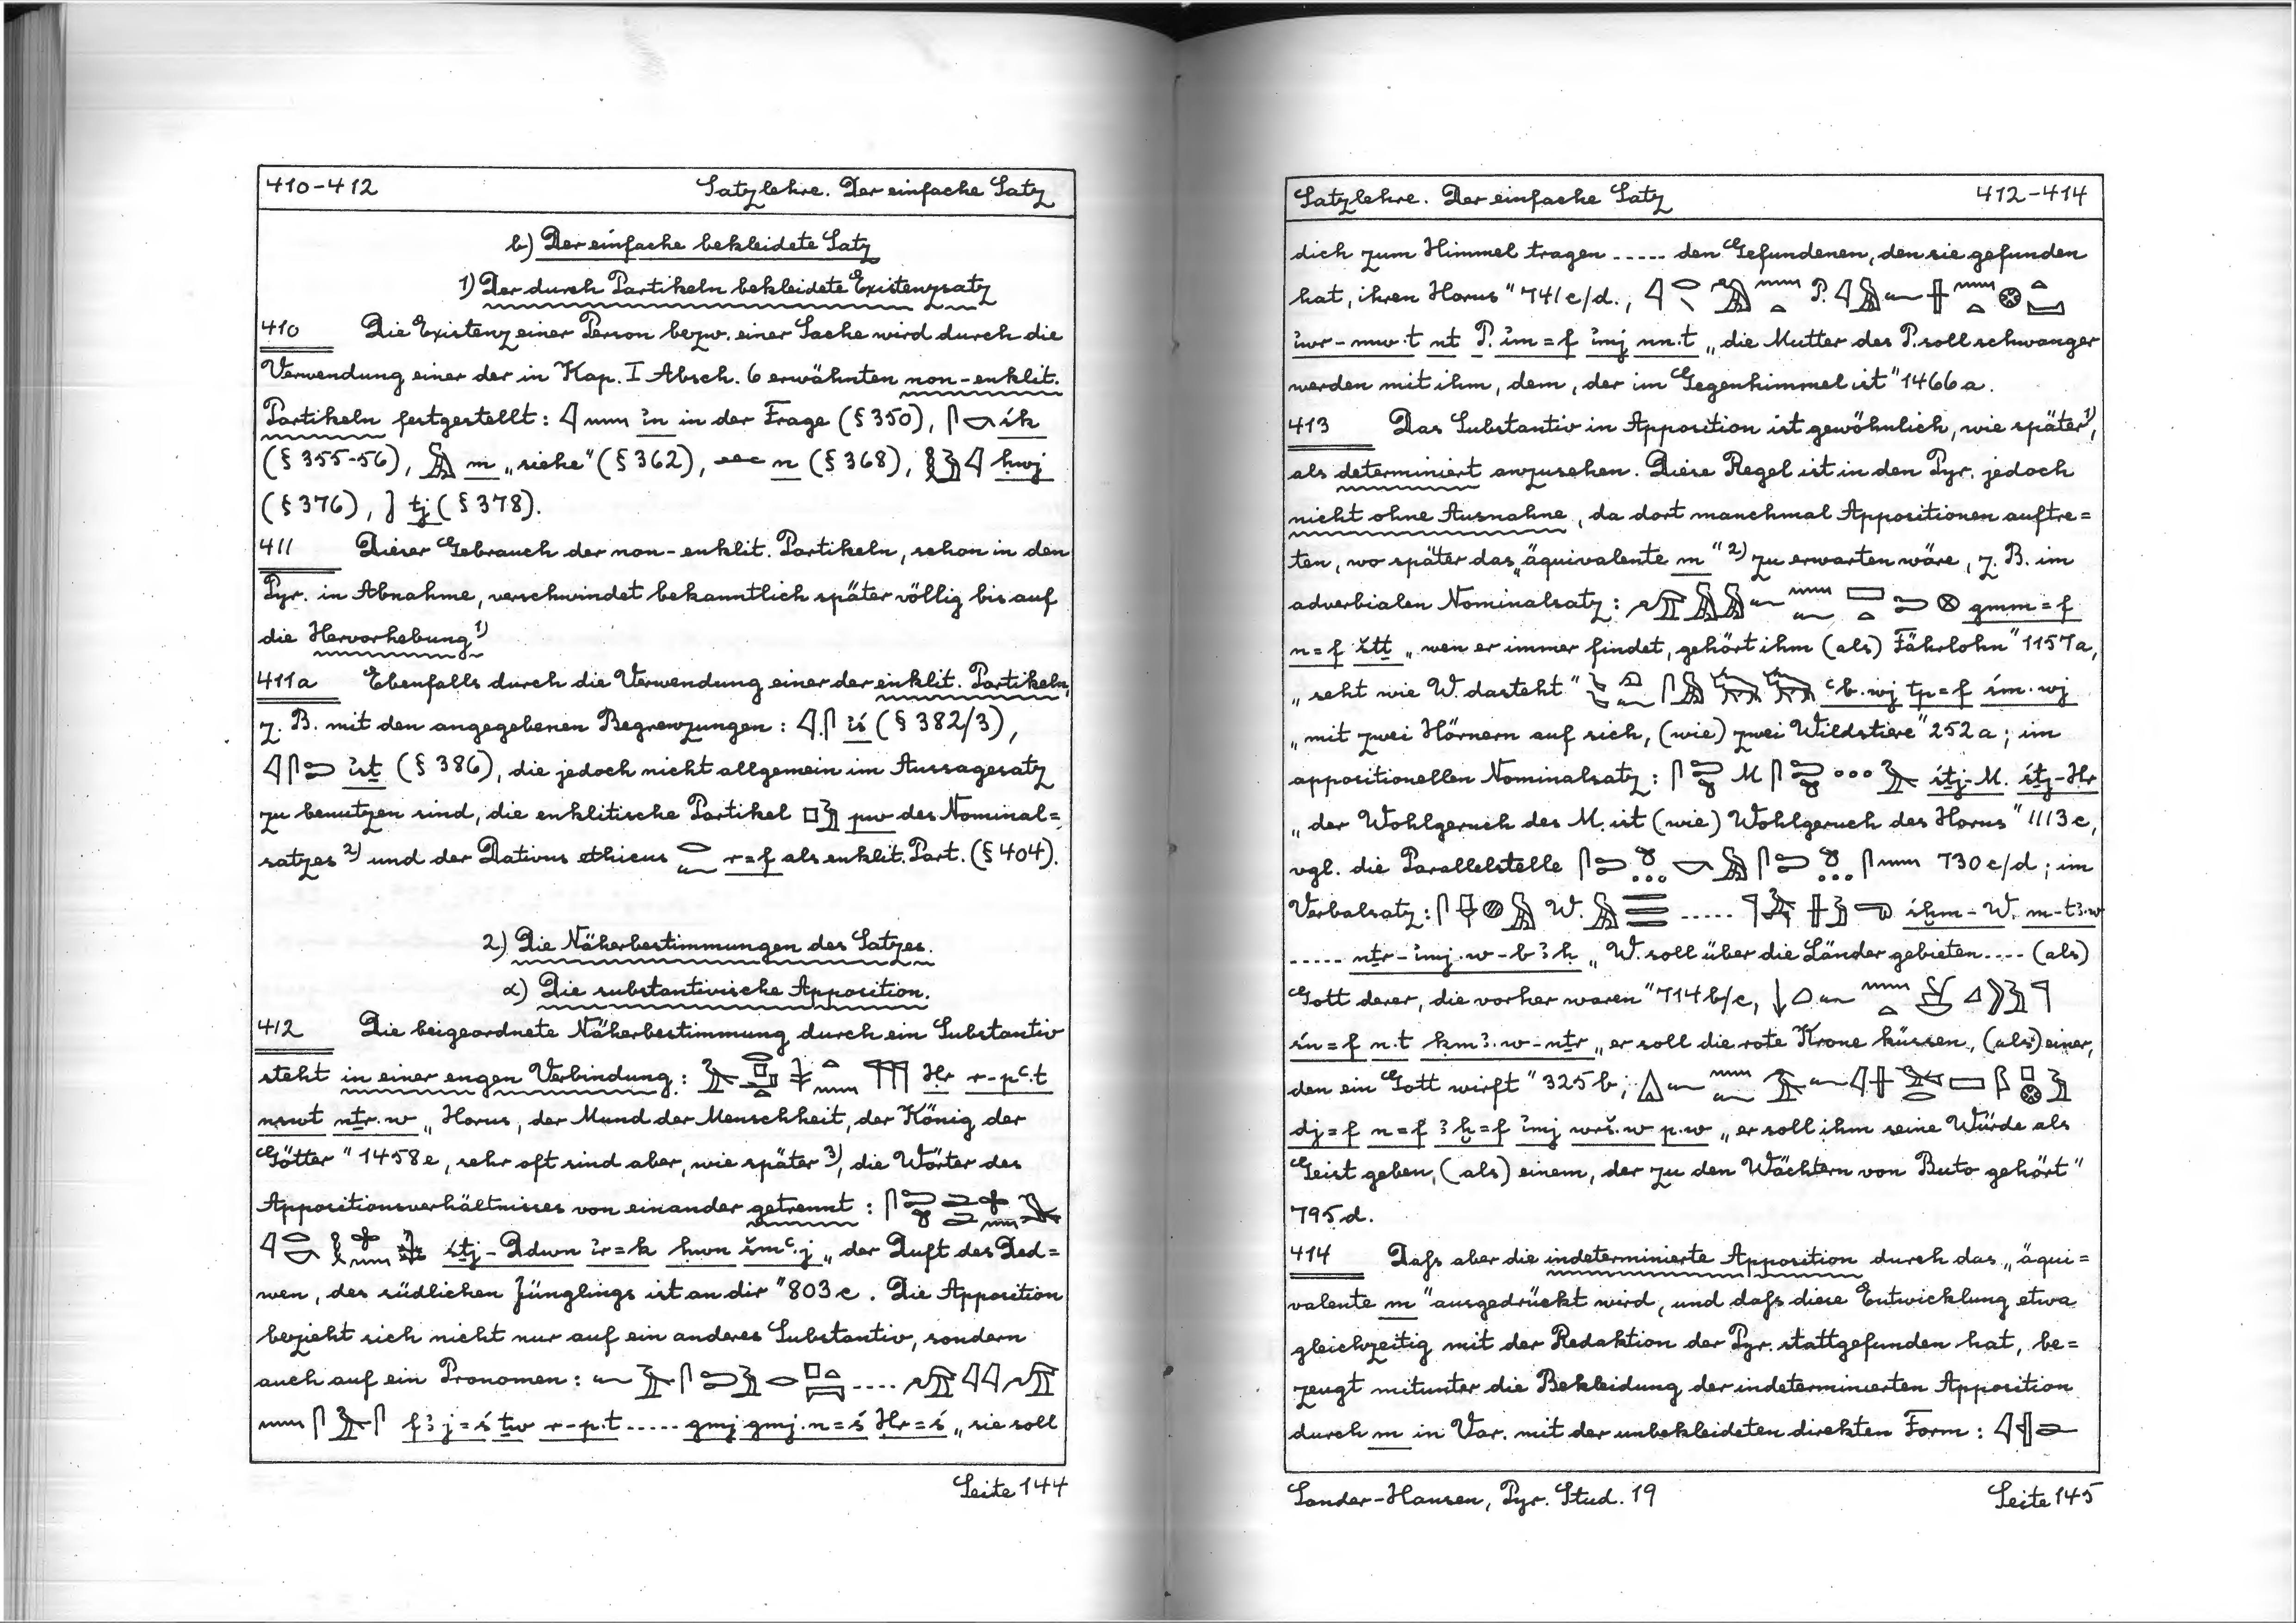 410-412 Satzlehre. Der einfache Satz
b) Der einfache bekleidete Satz
1) Der durch Partikeln bekleidete Existenzsatz
410 Die Existenz einer Person bezw. einer Sache wird durch die
Verwendung einer der in Kap. I Absch. 6 erwähnten non-enklit.
Partikeln festgestellt: 𓇋𓈖 ı͗n in der Frage (§ 350), 𓋴𓎡 śk
(§ 355-56), m „siehe“ (§ 362), n (§ 368), 𓎛𓅱𓇋 ḥwj
(§ 376), tj (§ 378).
411 Dieser Gebrauch der non-enklit. Partikeln, schon in den
Pyr. in Abnahme, verschwindet bekanntlich später völlig bis auf
die Hervorhebung 1)
411a Ebenfalls durch die Verwendung einer der enklit. Partikeln,
z. B. mit den angegebenen Begrenzungen: 𓇋𓋴 ı͗ś (§ 382/3),
𓇋𓋴𓍿 ı͗śṯ (§ 386), die jedoch nicht allgemein im Aussagesatz
zu benutzen sind, die enklitische Partikel 𓊪𓅱 pw des Nominal=
satzes 2) und der Dativus ethicus 𓂋𓆑 r=f als enklit. Part. (§ 404).
2) Die Näherbestimmungen des Satzes.
α) Die substantivische Apposition.
412 Die beigeordnete Näherbestimmung durch ein Substantiv
steht in einer engen Verbindung: Ḥr r-pꜥ.t
nśwt nṯr.w „Horus, der Mund der Menschheit, der König der
Götter“ 1458e, sehr oft sind aber, wie später 3), die Wörter des
Appositionsverhältnisses von einander getrennt:
śṯj-Ddwn ı͗r=k ḥwn šmꜥ.j „der Duft des Ded=
wen, des südlichen Jünglings ist an dir“ 803c. Die Apposition
bezieht sich nicht nur auf ein anderes Substantiv, sondern
auch auf ein Pronomen: .....
fꜣj=ś ṯw r-p.t ..... gmj gmj.n=ś Ḥr=ś „sie soll
Seite 144
Satzlehre. Der einfache Satz 412-414
dich zum Himmel tragen ..... den Gefundenen, den sie gefunden
hat, ihren Horus“ 741c/d.,
ı͗wr-mw.t nt P. ı͗m=f ı͗mj nn.t „die Mutter des P. soll schwanger
werden mit ihm, dem, der im Gegenhimmel ist“ 1466a.
413 Das Substantiv in Apposition ist gewöhnlich, wie später 1),
als determiniert anzusehen. Diese Regel ist in den Pyr. jedoch
nicht ohne Ausnahme, da dort manchmal Appositionen auftre=
ten, wo später das „äquivalente m“ 2) zu erwarten wäre, z. B. im
adverbialen Nominalsatz: gmm=f
n=f štṯ „wen er immer findet, gehört ihm (als) Fährlohn“ 1157a,
„seht wie W. dasteht“ ꜥb.wj tp=f śm.wj
„mit zwei Hörnern auf sich, (wie) zwei Wildstiere“ 252a; im
appositionellen Nominalsatz: śṯj-M. śṯj-Ḥr
„der Wohlgeruch des M. ist (wie) Wohlgeruch des Horus“ 1113c,
vgl. die Parallelstelle 730c/d; im
Verbalsatz: W. ..... śḫm-W. m-tꜣ.w
..... nṯr-ı͗mj.w-bꜣḥ „W. soll über die Länder gebieten .... (als)
Gott derer, die vorher waren“ 714b/c,
śn=f n.t ḳmꜣ.w-nṯr „er soll die rote Krone küssen, (als) einer,
den ein Gott wirft“ 325b;
dj=f n=f ꜣḫ=f ı͗mj wrš.w p.w „er soll ihm seine Würde als
Geist geben, (als) einem, der zu den Wächtern von Buto gehört“
795d.
414 Daß aber die indeterminierte Apposition durch das „äqui=
valente m“ ausgedrückt wird, und daß diese Entwicklung etwa
gleichzeitig mit der Redaktion der Pyr. stattgefunden hat, be=
zeugt mitunter die Bekleidung der indeterminierten Apposition
durch m in Var. mit der unbekleideten direkten Form:
Sander-Hansen, Pyr. Stud. 19 Seite 145